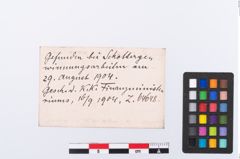 Gefunden bei Schotterge-
winnungsarbeiten am
29. August 1904.
Geschenk. K.K. Finanzministe-
riums, 16/9 1904, Z.